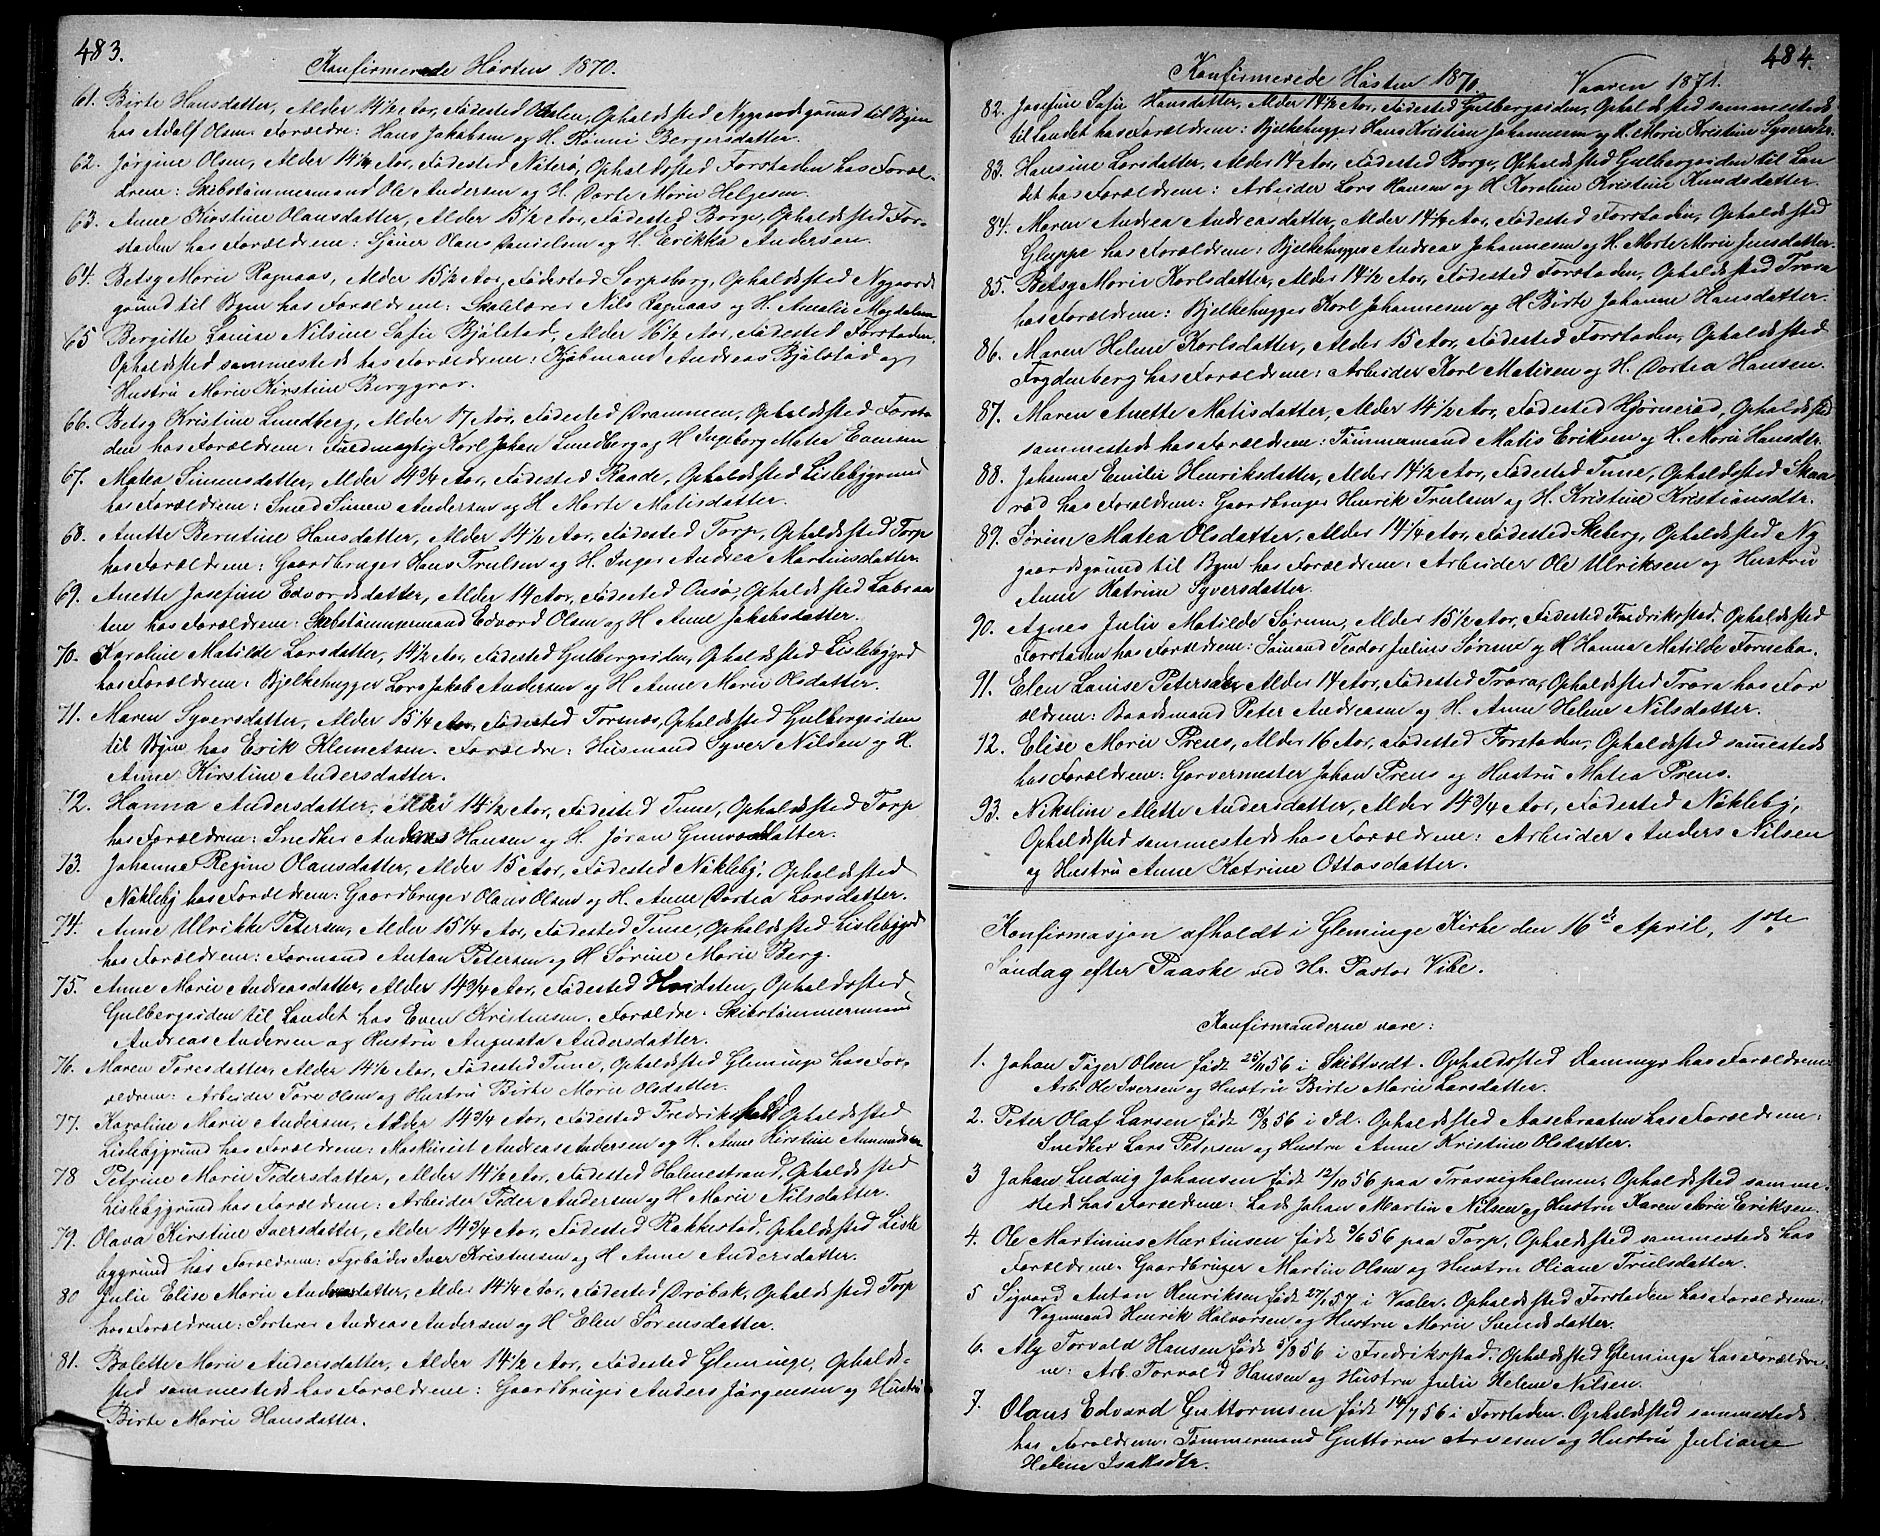 483.
Konfirmerede Høsten 1870.
61. Birte Hansdatter, Alder 14 1/2 Aar, Fødested Onsøen, Opholdssted Nygaardsgrund til Byen
hos Adolf Olsen. Forældre: Hans Jakobsen og H. Rønni Bergersdatter.
62. Jørgine Olsen, Alder 14 1/4 Aar, Fødested Nøterø, Opholdssted Forstaden hos Foræl-
drene: Skibstømmermand Ole Andersen og H. Dorte Marie Helgesen.
63. Anne Kirstine Olausdatter, Alder 15 1/2 Aar, Fødested Borge, Opholdssted For-
staden hos Forældrene: Olaus Danielsen og H. Erikka Andersen.
64. Betsy Marie Ragnaas, Alder 15 1/2 Aar, Fødested Sarpsborg, Opholdssted Nygaards
grund til Byen hos Forældrene: Skolelærer Nils Ragnaas og H. Amalie Magdalene
65 Bergitte Louise Nilsine Sofie Bjølstad, Alder 16 1/2 Aar, Fødested Forstaden,
Opholdssted sammesteds hos Forældrene: Kjøbmand Andreas Bjølstad og
Hustru Marie Kirstine Berggrav.
66. Betsy Kristine Lundberg, Alder 17 Aar, Fødested Drammen, Opholdssted Forsta
den hos Forældrene: Fuldmægtig Karl Johan Lundberg og H. Ingeborg Matea Evensen
67. Matea Simensdatter, Alder 14 3/4 Aar, Fødested Raade, Opholdssted Lislebygrund
hos Forældrene: Smed Simen Andersen og H. Marte Matisdatter.
68. Anette Berntine Hansdatter, Alder 14 1/2 Aar, Fødested Torp, Opholdssted Torp
hos Forældrene: Gaardbruger Hans Trulsen og H. Inger Andrea Martinsdatter.
69. Anette Josefine Edvardsdatter, Alder 14 Aar, Fødested Onsø, Opholdssted Labraa
ten hos Forældrene: Skibstømmermand Edvard Olsen og H. Anne Jakobsdatter.
70. Karoline Matilde Larsdatter, 14 1/2 Aar, Fødested Gulbergsiden, Opholdssted Lislebygrd
hos Forældrene: Bjelkehugger Lars Jakob Andersen og H. Anne Marie Olsdatter.
71. Maren Syversdatter, Alder 15 1/4 Aar, Fødested Tornæs, Opholdssted Gulbergsiden
til Byen hos Erik Klemetsen. Forældre: Husmand Syver Nilsen og H.
Anne Kirstine Andersdatter.
72. Hanna Andersdatter, Alder 14 1/2 Aar, Fødested Tune, Opholdssted Torp
hos Forældrene: Snedker Anders Hansen og H. Jøran Gunvordatter.
73. Johanne Regine Olausdatter, Alder 15 Aar, Fødested Nøkleby, Opholdssted
Nøkleby hos Forældrene: Gaardbruger Olaus Olsen og H. Anne Dortea Larsdatter.
74. Anne Ulrikke Petersen, Alder 15 1/4 Aar, Fødested Tune, Opholdssted Lislebygrd
hos Forældrene: Formand Anton Petersen og H. Sørine Marie Berg.
75. Anne Marie Andreasdatter, Alder 14 3/4 Aar, Fødested Hvidsten, Opholdssted
Gulbergsiden til Landet hos Even Kristensen. Forældre: Skibstømmermand
Andreas Andersen og Hustru Augusta Andersdatter.
76. Maren Toresdatter, Alder 14 1/2 Aar, Fødested Tune, Opholdssted Gleminge hos For-
ældrene: Arbeider Tore Olsen og Hustru Birte Marie Olsdatter.
77. Karoline Marie Andersen, Alder 14 3/4 Aar, Fødested Fredrikshald, Opholdssted
Lislebygrund hos Forældrene: Maskinist Andreas Andersen og H. Anne Kirstine Amundsen
78 Petrine Marie Pedersdatter, Alder 14 1/2 Aar, Fødested Holmestrand, Opholdssted
Lislebygrund hos Forældrene: Arbeider Peder Andersen og H. Marie Nilsdatter.
79. Olava Kirstine Iversdatter, Alder 14 3/4 Aar, Fødested Rakkestad, Opholdssted Lisle
bygrund hos Forældrene: Fyrbøder Iver Kristensen og H. Anne Andersdatter.
80 Julie Elise Marie Andreasdatter, Alder 14 1/4 Aar, Fødested Drøbak, Opholdssted Torp
hos Forældrene: Sorterer Andreas Andersen og H. Elen Sørensdatter.
81. Bolette Marie Andersdatter, Alder 14 1/2 Aar, Fødested Gleminge, Opholds-
sted sammesteds hos Forældrene: Gaardbruger Anders Jørgensen og Hustru
Birte Marie Hansdatter.
484.
Konfirmerede Høsten 1870. Vaaren 1871.
82. Josefine Sofie Hansdatter, Alder 14 1/2 Aar, Fødested Gulbergsiden, Opholdssted sammesteds
til Landet hos Forældrene: Bjelkehugger Hans Kristian Johannesen og H. Marie Kristine Syversdtr.
83. Hansine Larsdatter, Alder 14 Aar, Fødested Borge, Opholdssted Gulbergsiden til Lan
det hos Forældrene: Arbeider Lars Hansen og H. Karoline Kristine Knudsdatter.
84. Maren Andrea Andreasdatter, Alder 14 1/4 Aar, Fødested Forstaden, Opholdssted
Gluppe hos Forældrene: Bjelkehugger Andreas Johannesen og H. Marte Marie Jensdatter.
85. Betsy Marie Karlsdatter, Alder 14 1/2 Aar, Fødested Forstaden, Opholdssted Trara
hos Forældrene: Bjelkehugger Karl Johannesen og H. Birte Johanne Hansdatter.
86. Maren Helene Karlsdatter, Alder 15 Aar, Fødested Forstaden, Opholdssted
Fogdenberg hos Forældrene: Arbeider Karl Matisen og H. Dortea Hansen.
87. Maren Anette Matisdatter, Alder 14 1/2 Aar, Fødested Hjørnerød, Opholdssted
sammesteds hos Forældrene: Tømmermand Matis Eriksen og H. Marie Hansdtr.
88. Johanne Emilie Henriksdatter, Alder 14 1/2 Aar, Fødested Tune, Opholdssted Skaa
rød hos Forældrene: Gaardbruger Henrik Trulsen og H. Kristine Kristiansdtr.
89. Sørine Matea Olsdatter, Alder 14 1/4 Aar, Fødested Skeberg, Opholdssted Ny
gaardsgrund til Byen hos Forældrene: Arbeider Ole Ulriksen og Hustru
Anne Katrine Syversdatter.
90. Agnes Julie Matilde Sørensen, Alder 15 1/2 Aar, Fødested Fredrikstad. Opholdssted
Forstaden hos Forældrene: Sømand Teodor Julius Sørensen og H. Hanna Matilde Fornebo.
91. Elen Louise Petersdtr, Alder 14 Aar, Fødested Trara, Opholdssted Trara hos For
ældrene: Baadsmand Peter Andreasen og H. Anne Helene Nilsdatter.
92. Elise Marie Prens, Alder 16 Aar, Fødested Forstaden, Opholdssted sammesteds
hos Forældrene: Garvermester Johan Prens og Hustru Matea Prens.
93. Nikoline Alette Andersdatter, Alder 14 3/4 Aar, Fødested Nøkleby,
Opholdssted sammesteds hos Forældrene: Arbeider Anders Nilsen
og Hustru Anne Katrine Ottosdatter.
Konfirmasjon afholdt i Gleminge Kirke den 16de April, 1ste
Søndag efter Paaske ved Hr. Pastor Vibe.
Konfirmanderne vare:
1. Johan Tøger Olsen født 25/11 56 i Skibtvedt. Opholdssted Dammyr hos Forældrene
Arb. Ole Iversen og Hustru Birte Marie Larsdatter.
2. Peter Olaf Larsen født 18/8 56 i Id. Opholdssted Aasebraaten hos Forældrene:
Snedker Lars Petersen og Hustru Anne Kristine Olsdatter.
3 Johan Ludvig Johansen født 12/10 56 paa Trosvigholmen, Opholdssted samme-
steds hos Forældrene: Lods Johan Martin Nilsen og Hustru Karen Marie Eriksen.
4. Ole Martinius Martinsen født 3/6 56 paa Torp, Opholdssted sammesteds hos
Forældrene: Gaardbruger Martin Olsen og Hustru Oliane Trulsdatter.
5 Sigvard Anton Henriksen født 27/1 57 i Vaaler. Opholdssted Forstaden hos Forældrene:
Vognmand Henrik Halvorsen og Hustru Marie Svendsdatter.
6. Alf Torvald Hansen født 5/8 56 i Fredrikstad. Opholdssted Gleminge hos Forældre-
ne: Arb. Torvald Hansen og Hustru Julie Helene Nilsen.
7. Olaus Edvard Guttormsen født 14/7 56 i Forstaden. Opholdssted sammesteds
hos Forældrene: Tømmermand Guttorm Arvesen og Hustru Juliane
Helene Isaksdtr.